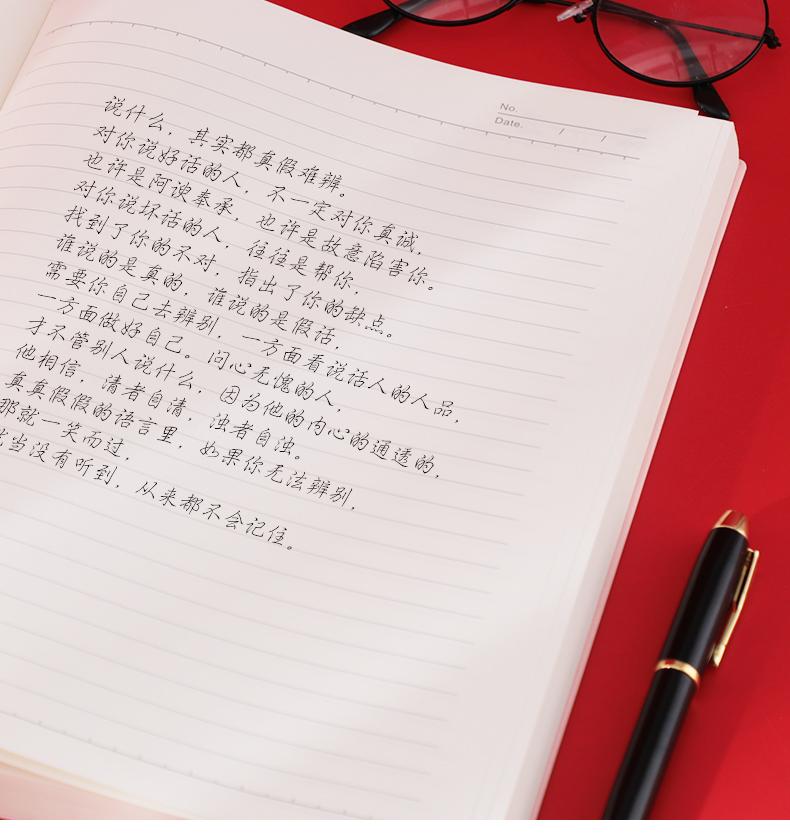 No.
Date. / /
说什么，其实都真假难辨。
对你说好话的人，不一定对你真诚，
也许是阿谀奉承，也许是故意陷害你。
对你说坏话的人，往往是帮你，
找到了你的不对，指出了你的缺点。
谁说的是真的，谁说的是假话，
需要你自己去辨别，一方面看说话人的人品，
一方面做好自己。问心无愧的人，
才不管别人说什么，因为他的内心的通透的，
他相信，清者自清，浊者自浊。
真真假假的语言里，如果你无法辨别，
那就一笑而过，
就当没有听到，从来都不会记住。